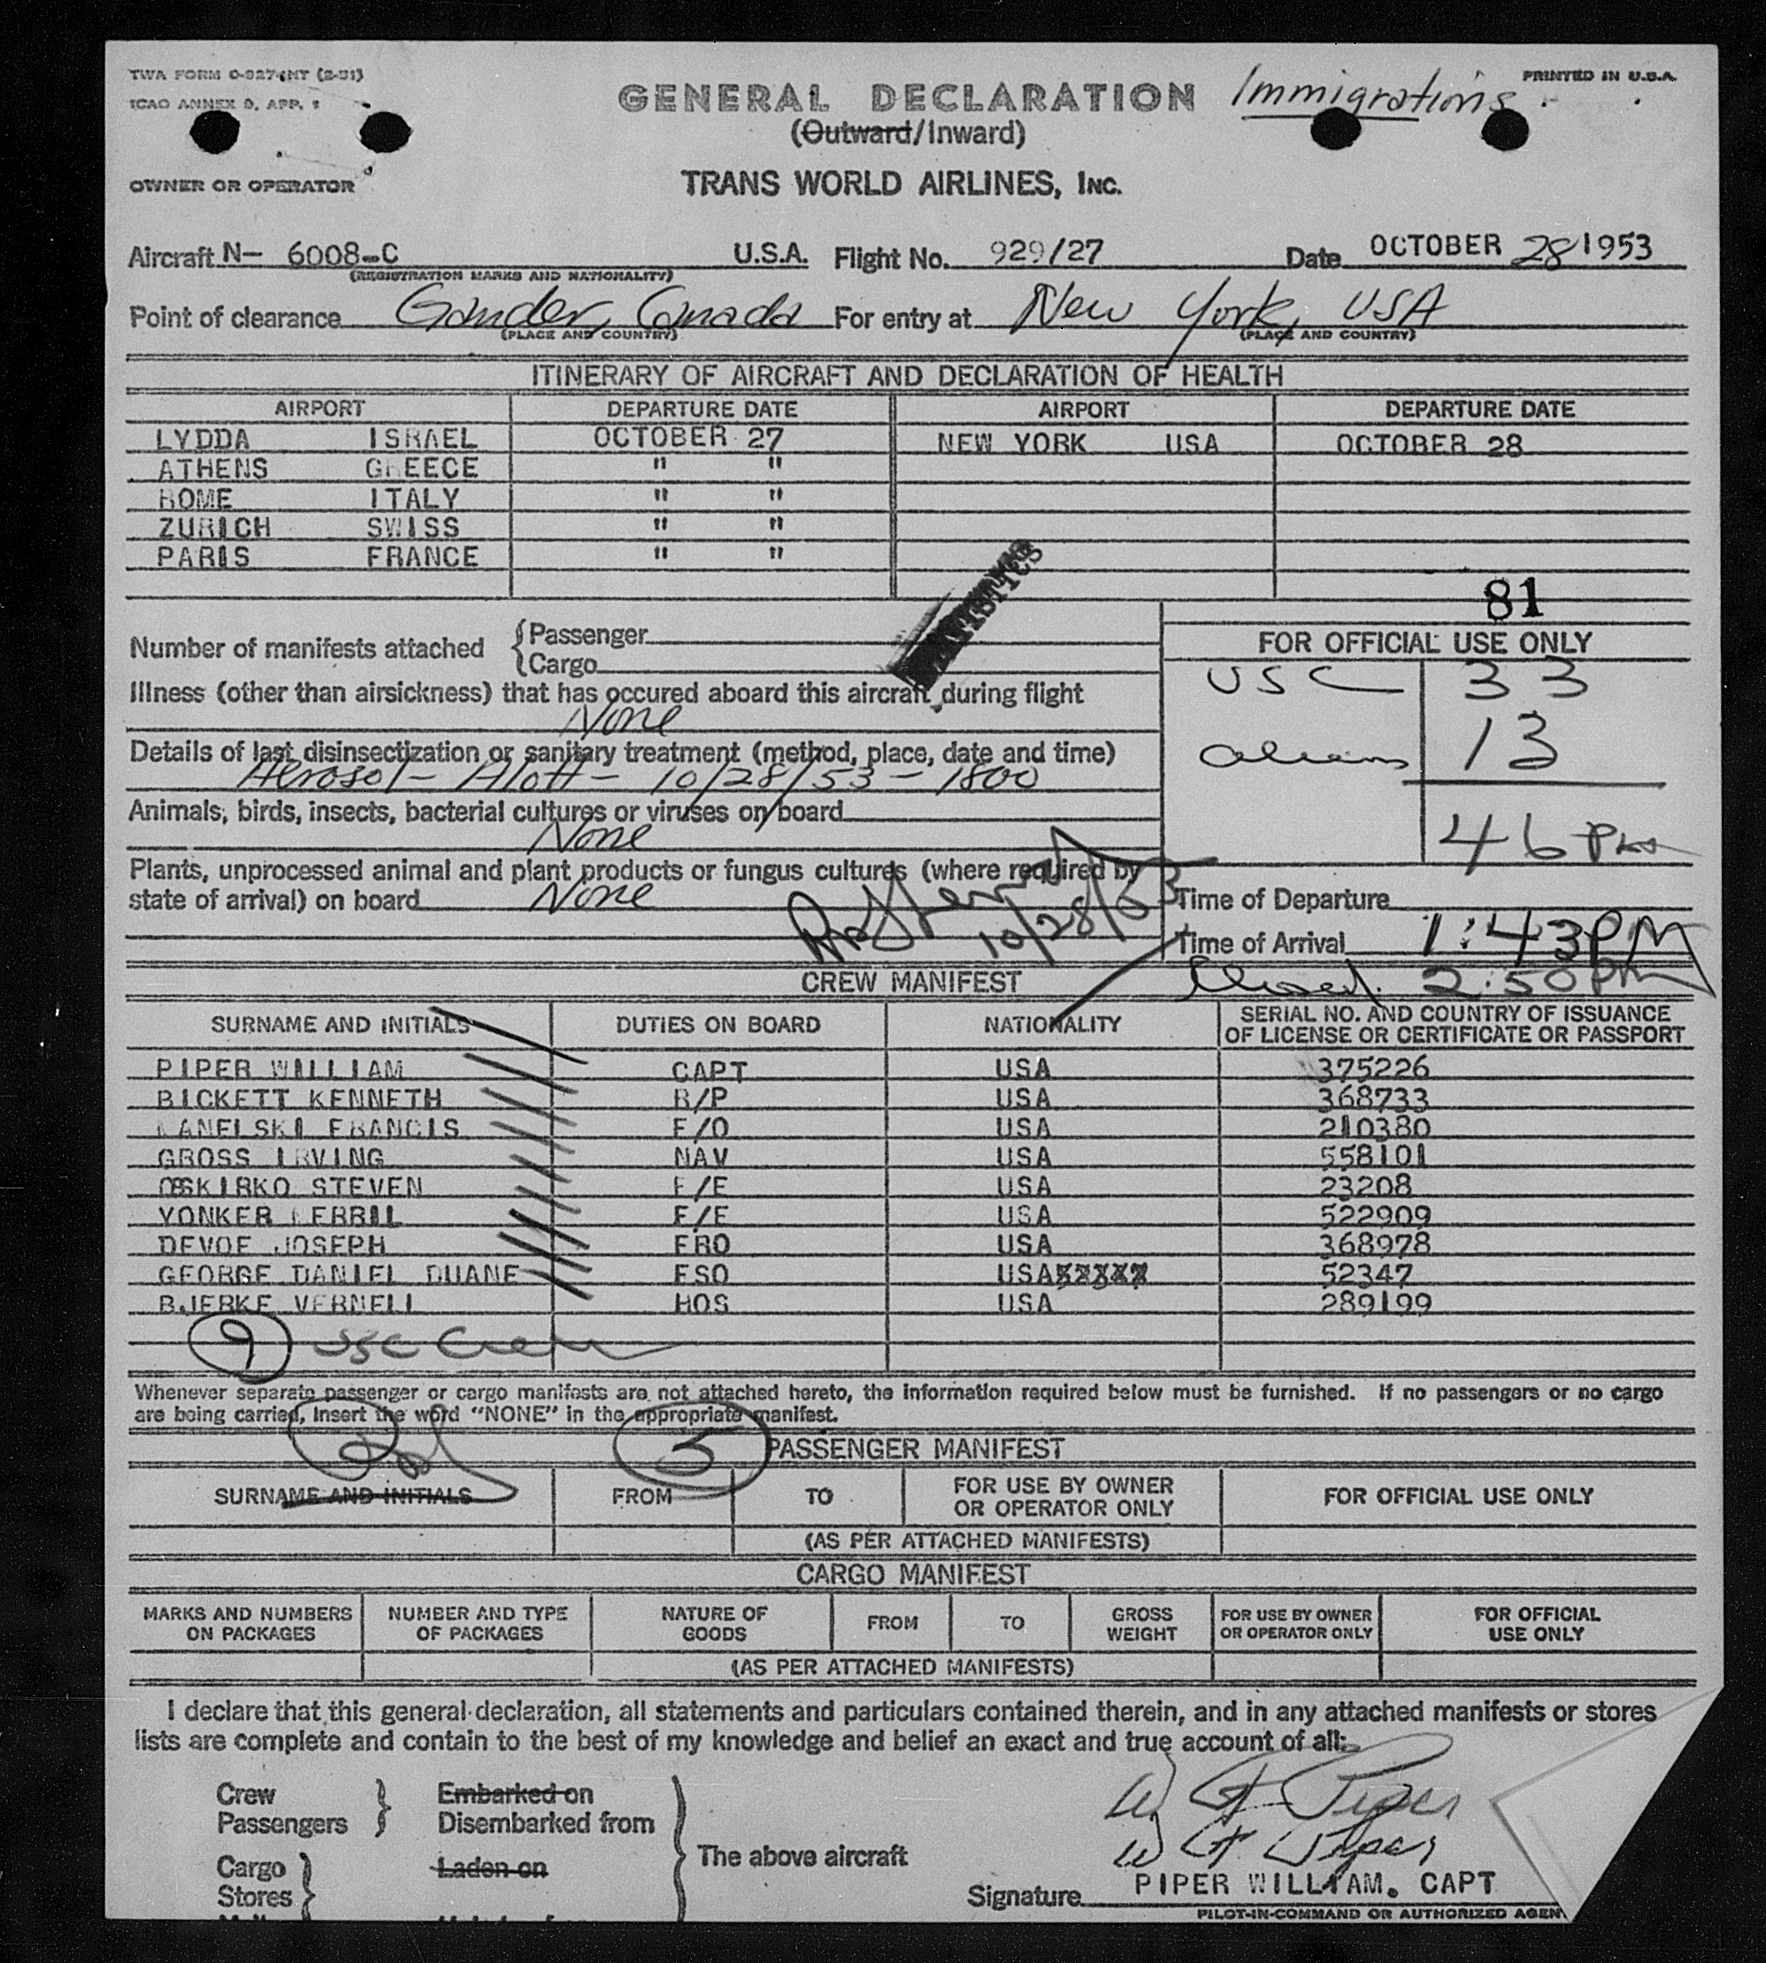 TWA FORM O-927-INT (2-51) PRINTED IN U.S.A.
ICAO ANNEX 9, APP. 1
GENERAL DECLARATION Immigrations
(Outward/Inward)
OWNER OR OPERATOR TRANS WORLD AIRLINES, INC.
Aircraft N- 6008-C U.S.A. Flight No. 929/27 Date OCTOBER 28 1953
(REGISTRATION MARKS AND NATIONALITY)
Point of clearance Gander, Canada For entry at New York, USA
(PLACE AND COUNTRY) (PLACE AND COUNTRY)
ITINERARY OF AIRCRAFT AND DECLARATION OF HEALTH
AIRPORT DEPARTURE DATE AIRPORT DEPARTURE DATE
LYDDA ISRAEL OCTOBER 27 NEW YORK USA OCTOBER 28
ATHENS GREECE " "
ROME ITALY " "
ZURICH SWISS " "
PARIS FRANCE " "
81
Number of manifests attached { Passenger
{ Cargo
FOR OFFICIAL USE ONLY
USC 33
Illness (other than airsickness) that has occured aboard this aircraft during flight
None
Details of last disinsectization or sanitary treatment (method, place, date and time)
Aliens 13
Aerosol - Aloft - 10/28/53 - 1800
Animals, birds, insects, bacterial cultures or viruses on board
None
46
Plants, unprocessed animal and plant products or fungus cultures (where required by
state of arrival) on board None
10/28/53
Time of Departure
Time of Arrival 1:43 PM
Closed. 2:50 PM
CREW MANIFEST
SURNAME AND INITIALS DUTIES ON BOARD NATIONALITY SERIAL NO. AND COUNTRY OF ISSUANCE
OF LICENSE OR CERTIFICATE OR PASSPORT
PIPER WILLIAM CAPT USA 375226
BICKETT KENNETH R/P USA 368733
FRANCIS F/O USA 210380
GROSS IRVING NAV USA 558101
OSKIRKO STEVEN F/E USA 23208
YONKER F/E USA 522909
DEVOE JOSEPH FRO USA 368978
GEORGE DANIEL DUANE FSO USA 52347
BJERKE VERNELL HOS USA 289199
9 USC Crew
Whenever separate passenger or cargo manifests are not attached hereto, the information required below must be furnished. If no passengers or no cargo
are being carried, insert the word "NONE" in the appropriate manifest.
5 PASSENGER MANIFEST
SURNAME AND INITIALS FROM TO FOR USE BY OWNER
OR OPERATOR ONLY FOR OFFICIAL USE ONLY
(AS PER ATTACHED MANIFESTS)
CARGO MANIFEST
MARKS AND NUMBERS
ON PACKAGES NUMBER AND TYPE
OF PACKAGES NATURE OF
GOODS FROM TO GROSS
WEIGHT FOR USE BY OWNER
OR OPERATOR ONLY FOR OFFICIAL
USE ONLY
(AS PER ATTACHED MANIFESTS)
I declare that this general declaration, all statements and particulars contained therein, and in any attached manifests or stores
lists are complete and contain to the best of my knowledge and belief an exact and true account of all:
Crew Embarked on
Passengers Disembarked from
The above aircraft
Cargo Laden on
Stores
W F Piper
W F Piper
Signature PIPER WILLIAM. CAPT
PILOT-IN-COMMAND OR AUTHORIZED AGEN